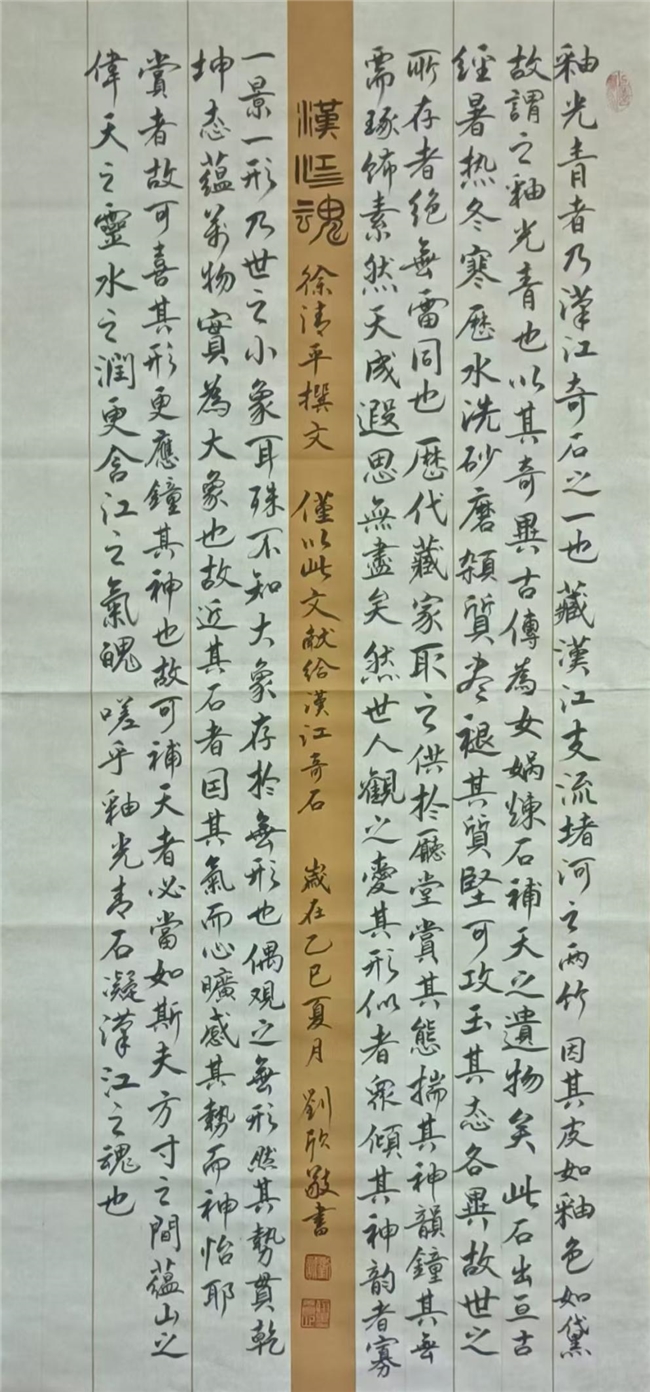 釉光青者乃漢江奇石之一也藏漢江支流堵河之兩竹因其皮如釉色如黛
故謂之釉光青也以其奇異古傳為女媧煉石補天之遺物矣此石出亘古
經暑热冬寒歷水洗砂磨纇質盡褪其質堅可攻玉其态各異故世之
所存者绝無雷同也歷代藏家取之供於廳堂賞其態揣其神韻鐘其無
需琢飾素然天成遐思無盡矣然世人觀之愛其形似者眾傾其神韵者寡
漢江魂 徐清平撰文 僅以此文献给漢江奇石 歲在乙巳夏月 劉欣敬書
一景一形乃世之小象耳殊不知大象存於無形也偶观之無形然其勢貫乾
坤态蕴萬物實為大象也故近其石者因其氣而心曠感其勢而神怡耶
賞者故可喜其形更應鐘其神也故可補天者必當如斯夫方寸之間蕴山之
偉天之靈水之潤更含江之氣魄嗟乎釉光青石凝漢江之魂也